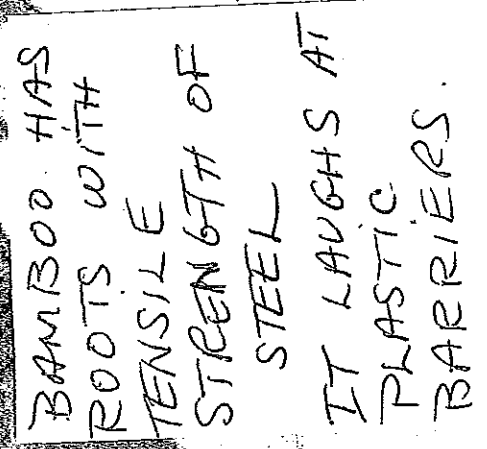 BAMBOO HAS
ROOTS WITH
TENSILE
STRENGTH OF
STEEL
IT LAUGHS AT
PLASTIC
BARRIERS.